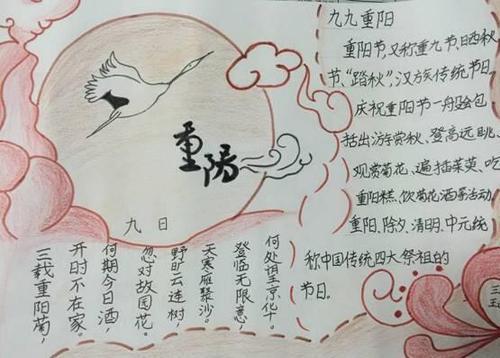 重阳
九日
三载重阳菊，
开时不在家。
何期今日酒，
忽对故园花。
野旷云连树，
天寒雁聚沙。
登临无限意，
何处望京华。
九九重阳
重阳节，又称重九节、晒秋
节、“踏秋”，汉族传统节日。
庆祝重阳节一般会包
括出游赏秋、登高远眺、
观赏菊花、遍插茱萸、吃
重阳糕、饮菊花酒等活动
重阳、除夕、清明、中元统
称中国传统四大祭祖的
节日。